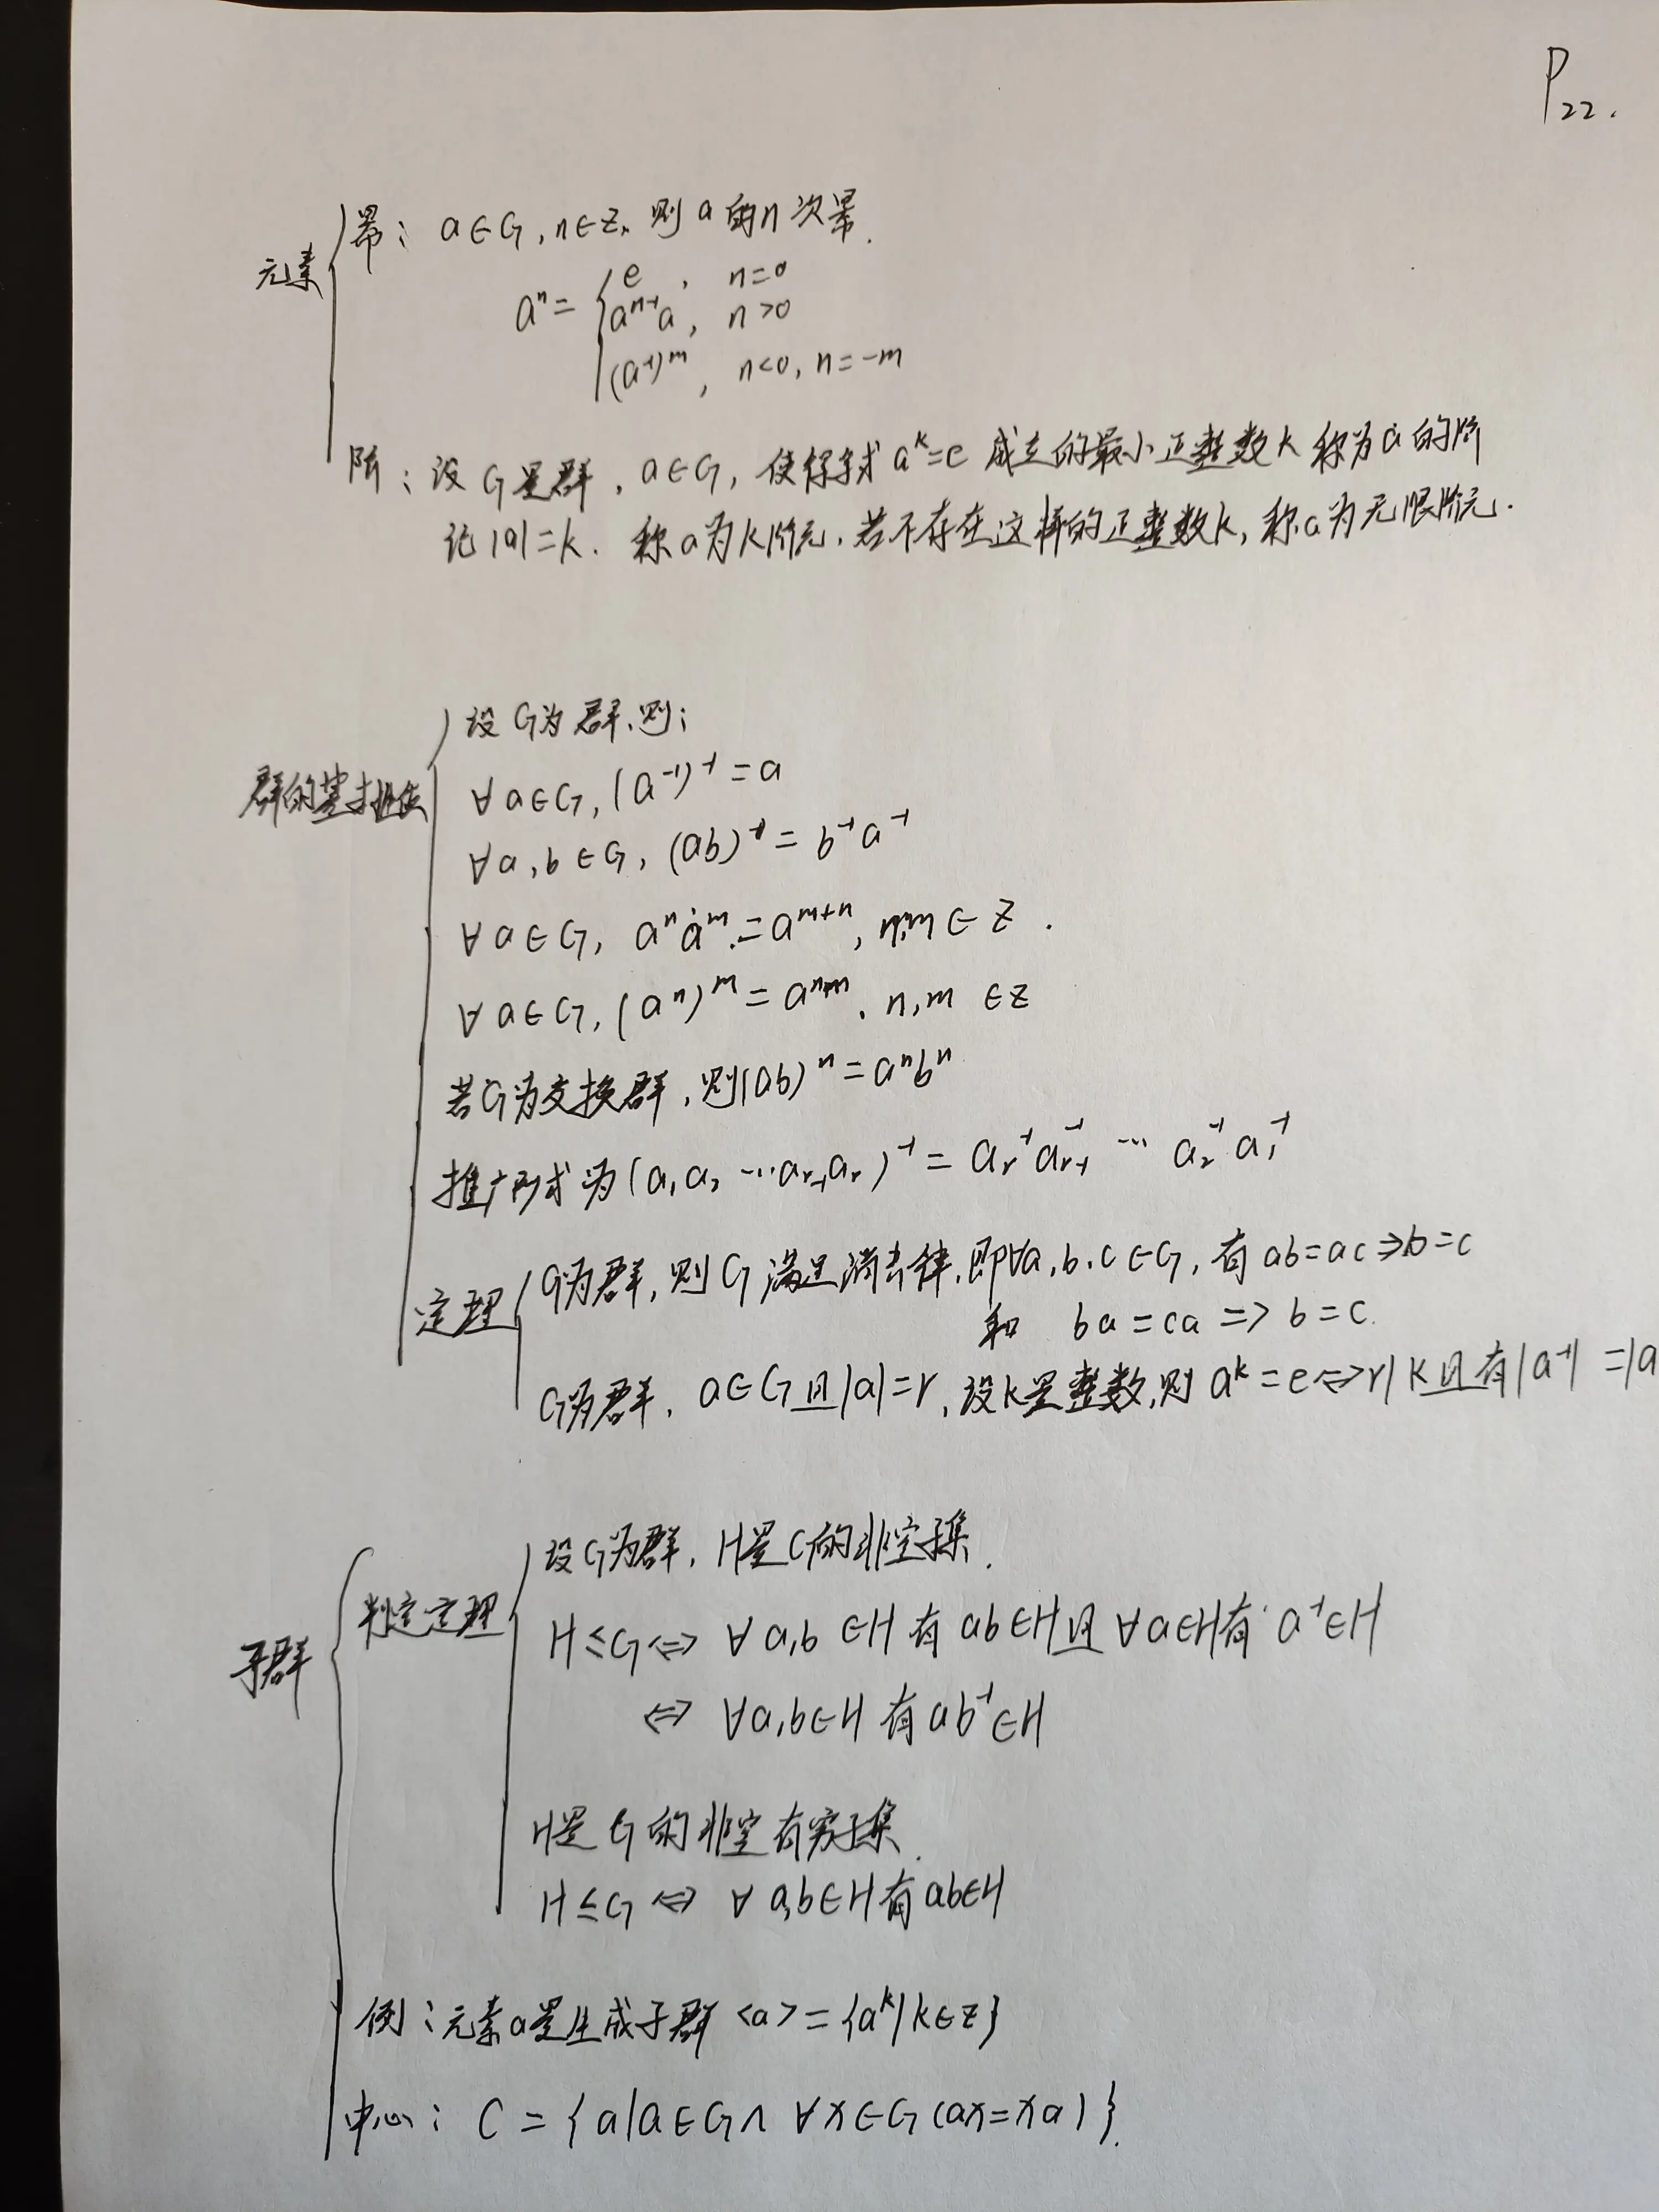 P22.
幂：a∈G，n∈Z，则a的n次幂.
元素
aⁿ= { e ， n=0
aⁿ⁻¹a， n>0
(a⁻¹)ᵐ， n<0，n=-m
阶：设G是群，a∈G，使得等式 aᵏ=e 成立的最小正整数k称为a的阶
记|a|=k. 称a为k阶元，若不存在这样的正整数k，称a为无限阶元.
设G为群，则：
群的基本性质
∀a∈G，(a⁻¹)⁻¹=a
∀a，b∈G，(ab)⁻¹=b⁻¹a⁻¹
∀a∈G，aⁿaᵐ=aᵐ⁺ⁿ，n，m∈Z.
∀a∈G，(aⁿ)ᵐ=aⁿᵐ，n，m∈Z
若G为交换群，则(ab)ⁿ=aⁿbⁿ
推广形式为(a₁a₂…aᵣ₋₁aᵣ)⁻¹=aᵣ⁻¹aᵣ₋₁⁻¹…a₂⁻¹a₁⁻¹
G为群，则G满足消去律，即∀a，b，c∈G，有ab=ac⇒b=c
定理
和 ba=ca=>b=c.
G为群，a∈G且|a|=r，设k是整数，则aᵏ=e⇔r|k且有|a⁻¹|=|a
设G为群，H是G的非空子集.
判定定理
H≤G⇔∀a，b∈H有ab∈H且∀a∈H有a⁻¹∈H
子群
⇔∀a，b∈H有ab⁻¹∈H
H是G的非空有穷子集.
H≤G⇔∀a，b∈H有ab∈H
例：元素a是生成子群<a>={aᵏ|k∈Z}
中心：C={a|a∈G∧∀x∈G(ax=xa)}.